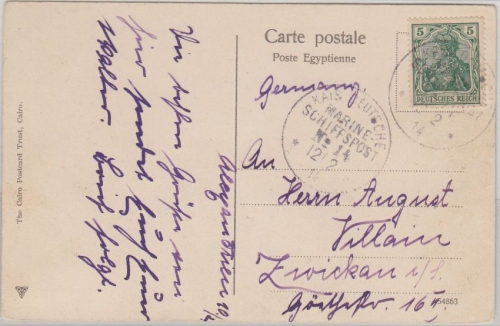 Carte postale
Poste Egyptienne
5 5
DEUTSCHES REICH
Germany.
KAIS. DEUTSCHE
MARINE-
SCHIFFSPOST
No 14
12/2
14
12/2
14
An
Herrn August
Villain
Zwickau i/S.
Göthestr. 16
54863
The Cairo Postcard Trust, Cairo.
Alexandrien 10/2
Die besten Grüße von
hier sendet
Walther. Brief folgt.